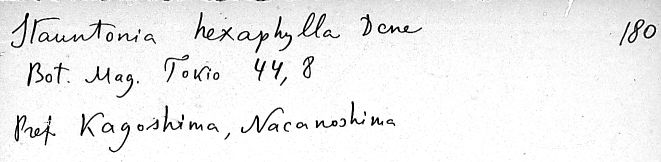 Stauntonia hexaphylla Dcne 180
Bot. Mag. Tokio 44, 8
Pref. Kagoshima, Nacanoshima